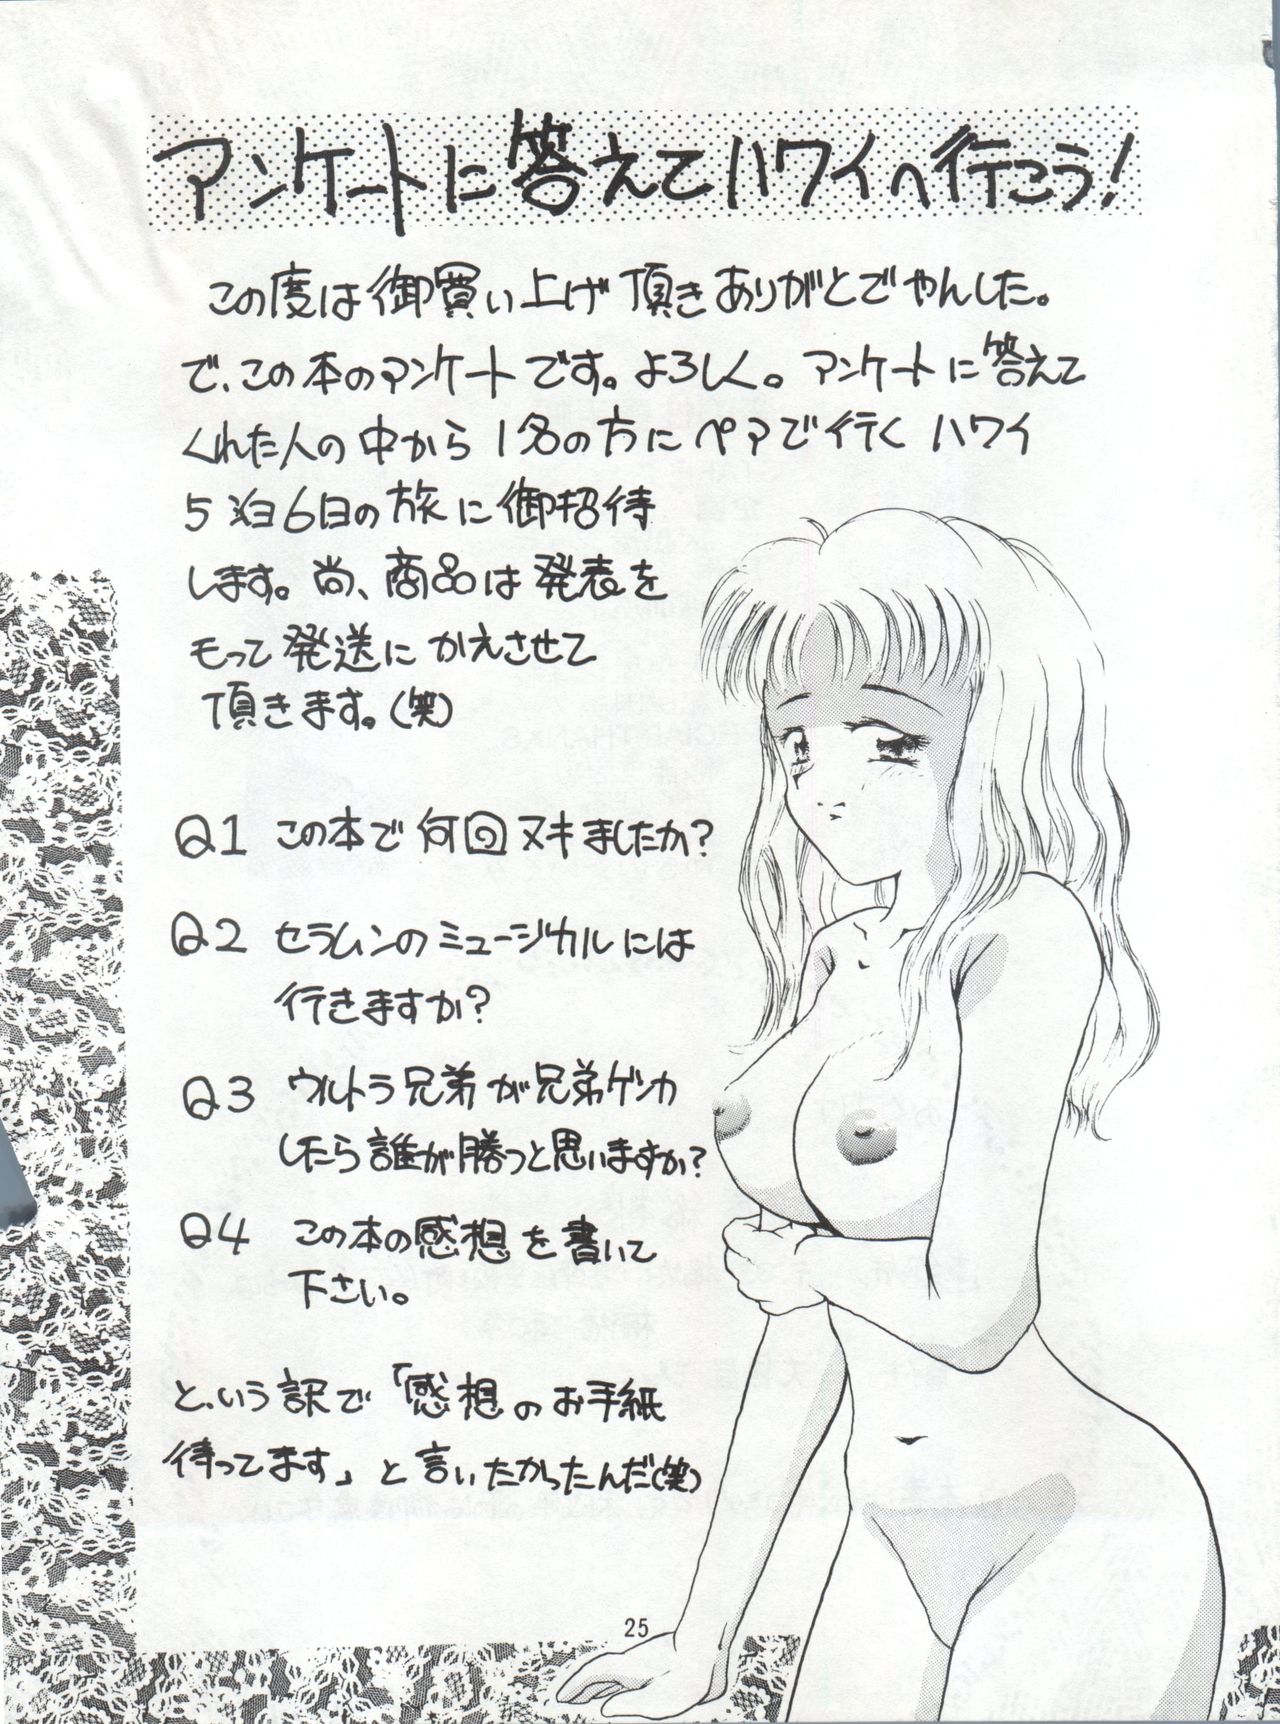 アンケートに答えてハワイへ行こう!
この度は御買い上げ頂きありがとでやんした。
で、この本のアンケートです。よろしく。アンケートに答えて
くれた人の中から1名の方にペアで行くハワイ
5泊6日の旅に御招待
します。尚、商品は発表を
もって発送にかえさせて
頂きます。(笑)
Q1 この本で何回ヌキましたか?
Q2 セラムンのミュージカルには
行きますか?
Q3 ウルトラ兄弟が兄弟ゲンカ
したら誰が勝つと思いますか?
Q4 この本の感想を書いて
下さい。
と、いう訳で「感想のお手紙
待ってます」と言いたかったんだ(笑)
25